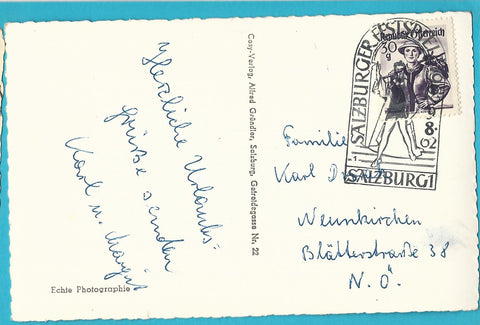 Herzliche Urlaubs-
grüße senden
Karl u. Margit
Echte Photographie
Cosy-Verlag, Alfred Gründler, Salzburg, Getreidegasse Nr. 22
Republik Österreich
30
g
SALZBURGER FESTSPIELE
8.
62
1
SALZBURG 1
Familie
Karl
Neunkirchen
Blätterstraße 38
N. Ö.